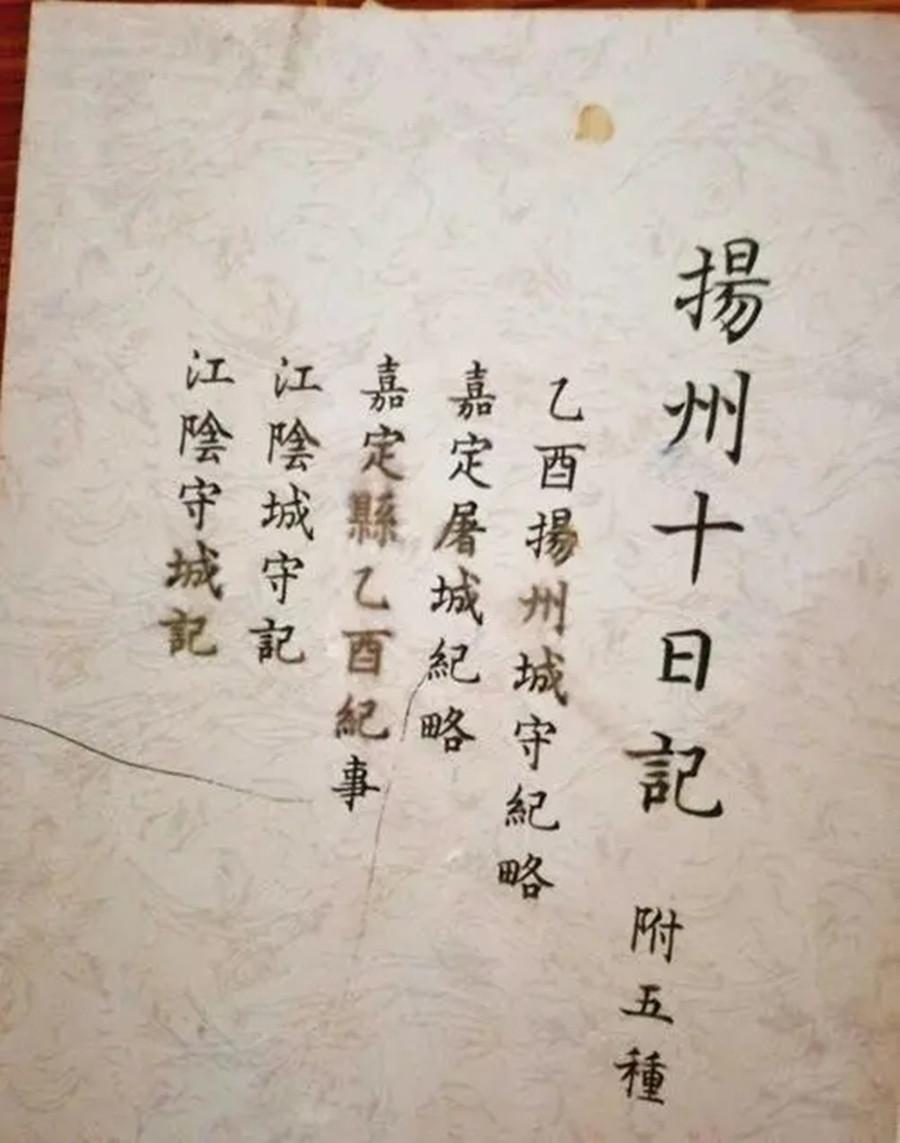 揚州十日記 附五種
乙酉揚州城守紀略
嘉定屠城紀略
嘉定縣乙酉紀事
江陰城守記
江陰守城記